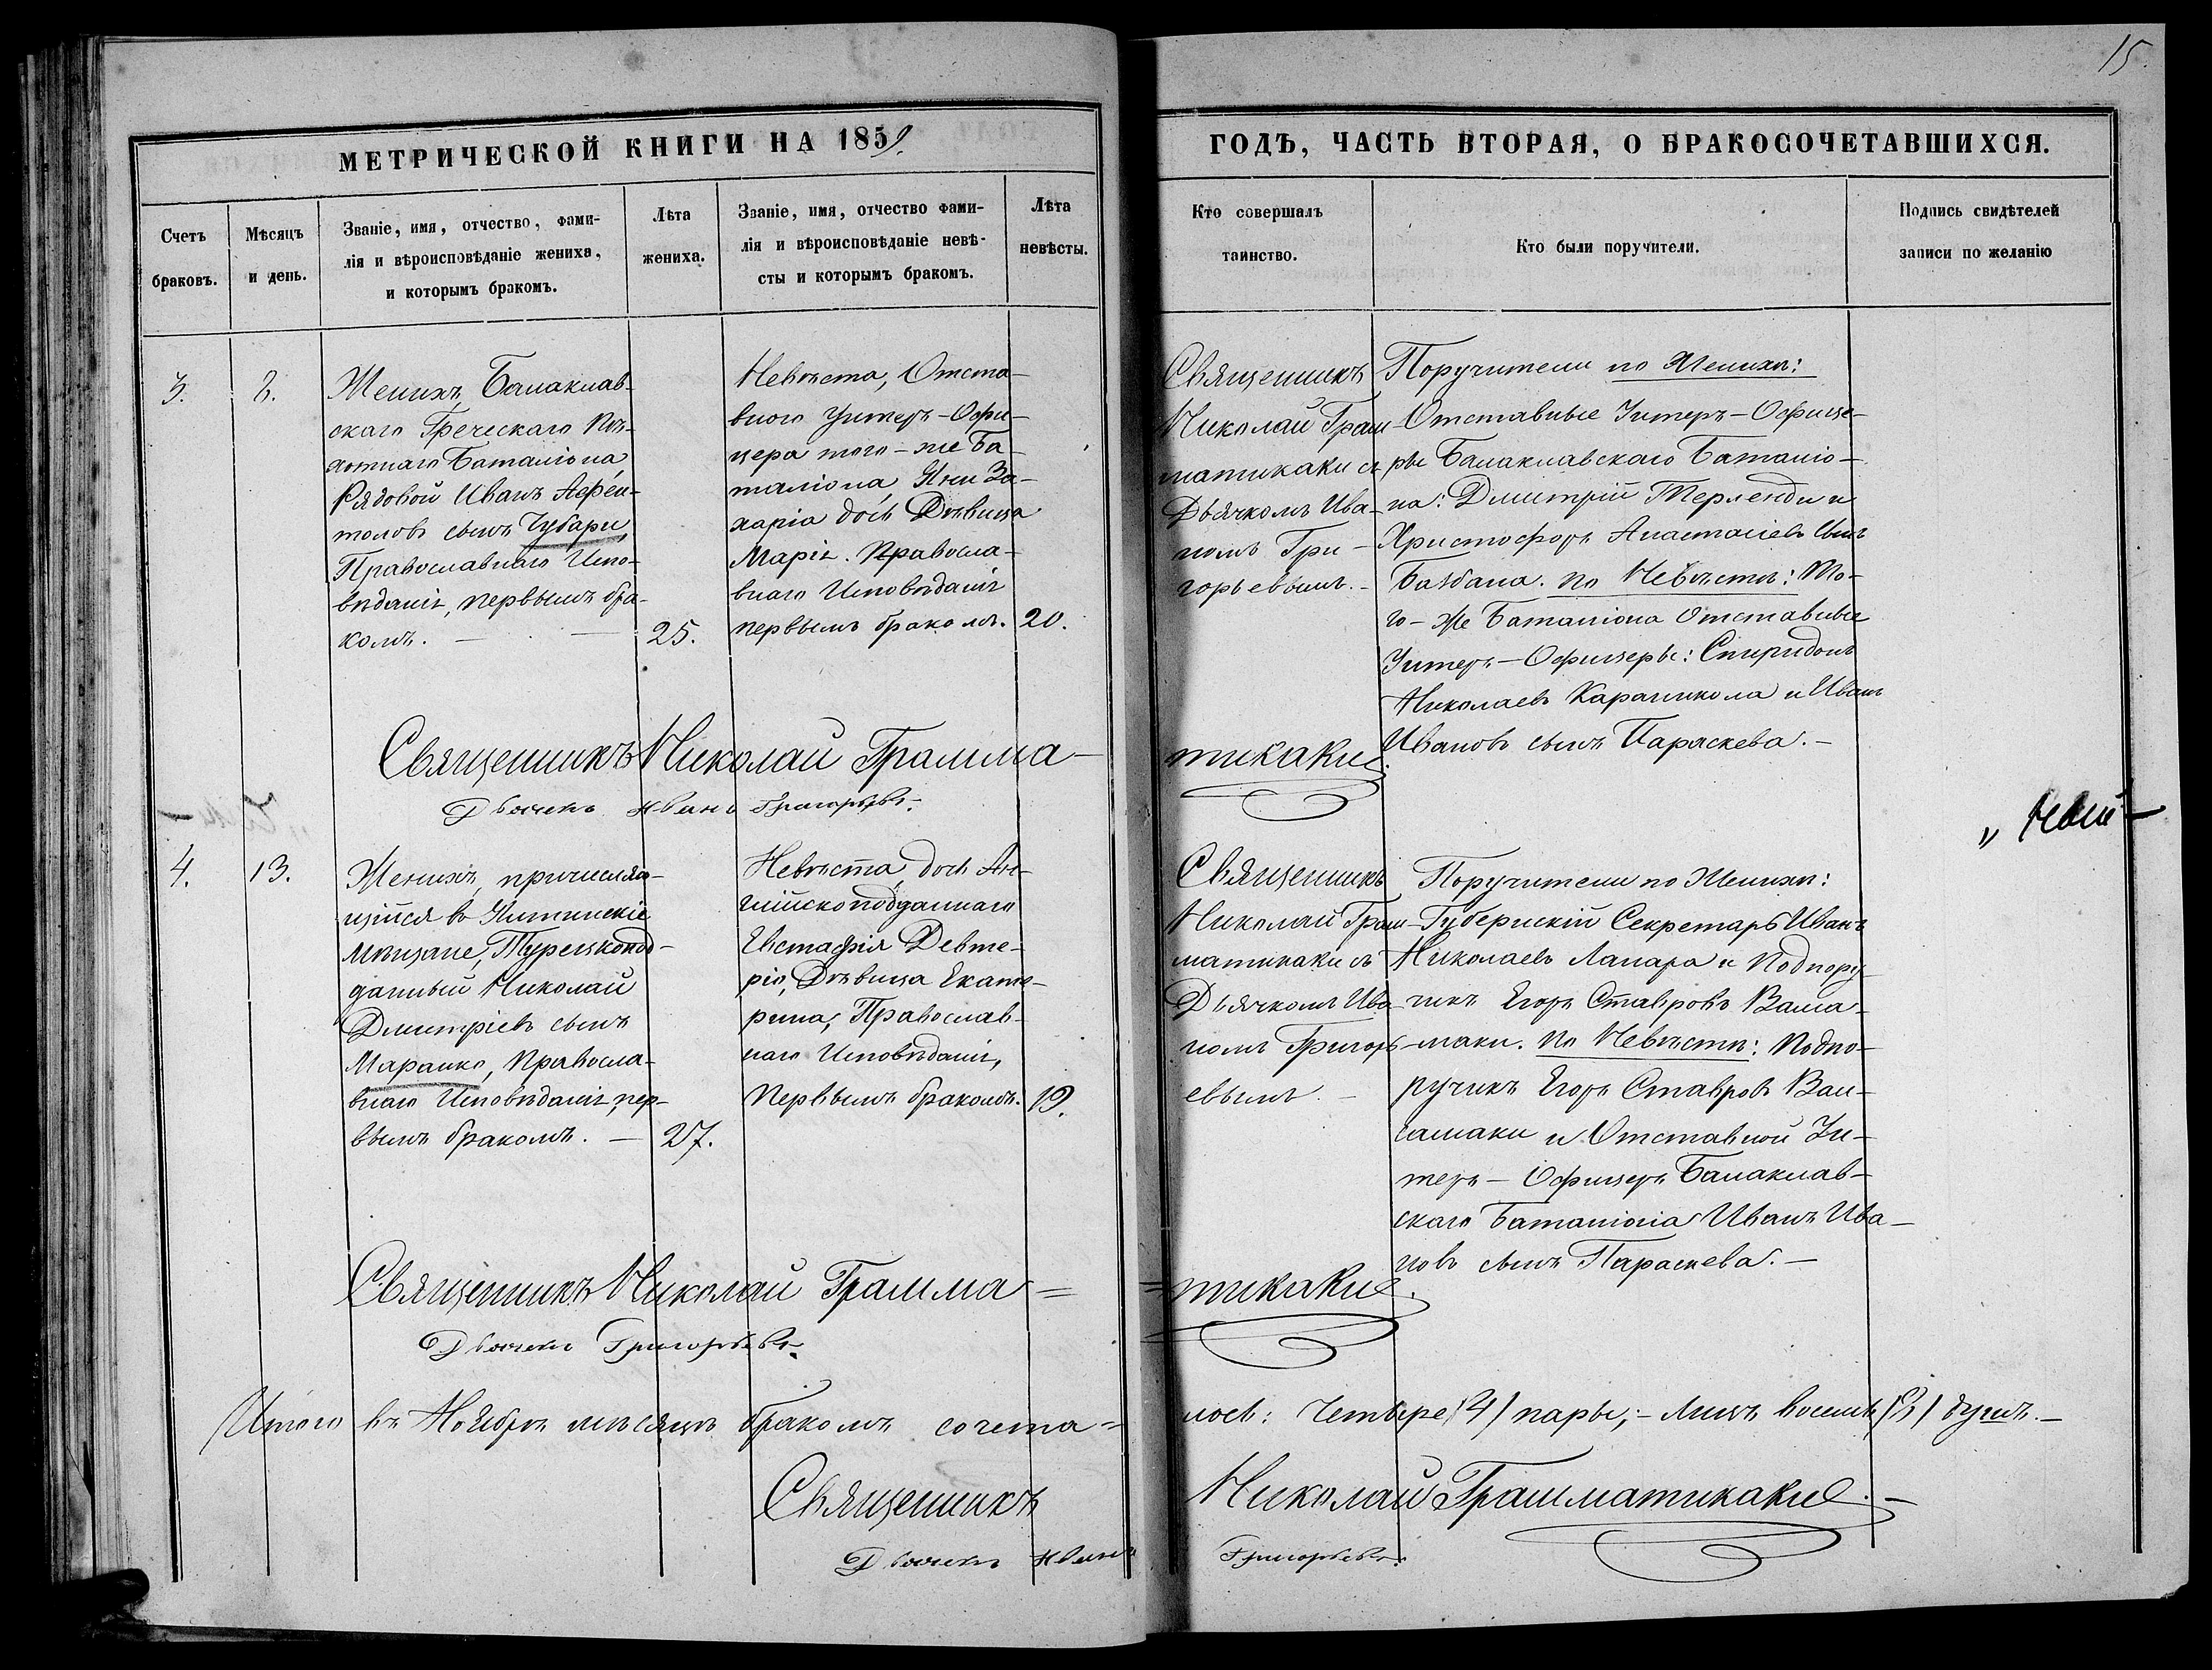 15.
МЕТРИЧЕСКОЙ КНИГИ НА 1859.
ГОДЪ, ЧАСТЬ ВТОРАЯ, О БРАКОСОЧЕТАВШИХСЯ.
Счетъ
браковъ.
Мѣсяцъ
и день.
Званіе, имя, отчество, фами-
лія и вѣроисповѣданіе жениха,
и которымъ бракомъ.
Лѣта
жениха.
Званіе, имя, отчество фами-
лія и вѣроисповѣданіе невѣ-
сты и которымъ бракомъ.
Лѣта
невѣсты.
Кто совершалъ
таинство.
Кто были поручители.
Подпись свидѣтелей
записи по желанію
3.
8.
Женихъ, Балаклав-
скаго Греческаго Пѣ-
хотнаго Баталіона,
Рядовой Иванъ Афен-
толовъ сынъ Чубари,
Православнаго Испо-
вѣданія, первымъ бра-
комъ. —
25.
Невѣста, Отста-
внаго Унтеръ-Офи-
цера того-же Ба-
таліона, Яни За-
харіа дочь Дѣвица
Марія. Правосла-
внаго Исповѣданія
первымъ бракомъ.
20.
Священникъ
Николай Грам-
матикаки съ
Дьячкомъ Ива-
номъ Гри-
горьевымъ. -
Поручители по Женихѣ:
Отставные Унтеръ-Офице-
ры Балаклавскаго Баталіо-
на: Дмитрій Терленди и
Христофоръ Анастасіевъ сынъ
По Невѣстѣ: То-
го-же Баталіона Отставные
Унтеръ-Офицеры: Спиридонъ
Николаевъ Караникола и Иванъ
Ивановъ сынъ Параскева. -
Священникъ Николай Грамма-
тикаки.
Дьячекъ Иванъ Григорьевъ.
4.
13.
Женихъ, причисляю-
щійся въ
мѣщане, Турецкопод-
данный Николай
Дмитріевъ сынъ
Маранко, Правосла-
внаго Исповѣданія, пер-
вымъ бракомъ. —
27.
Невѣста дочь Ан-
глійскоподданнаго
Евстафія Девте-
ріо, Дѣвица Екате-
рина, Православ-
наго Исповѣданія,
Первымъ бракомъ.
19.
Священникъ
Николай Грам-
матикаки съ
Дьячкомъ Ива-
номъ Григорь-
евымъ. -
Поручители по Женихѣ:
Губернскій Секретарь Иванъ
Николаевъ Лапара и Подпору-
чикъ Егоръ Ставровъ
По Невѣстѣ: Подпо-
ручикъ Егоръ Ставровъ
и Отставной Ун-
теръ-Офицеръ Балаклав-
скаго Баталіона Иванъ Ива-
новъ сынъ Параскева. —
Священникъ Николай Грамма=
=тикаки.
Дьячекъ Григорьевъ.
Итого въ Ноябрѣ мѣсяцѣ бракомъ сочета=
лось: Четыре /4/ пары; - лицъ восемь /8/ душъ. —
Священникъ
Николай Грамматикаки. -
Дьячекъ Иванъ
Григорьевъ.